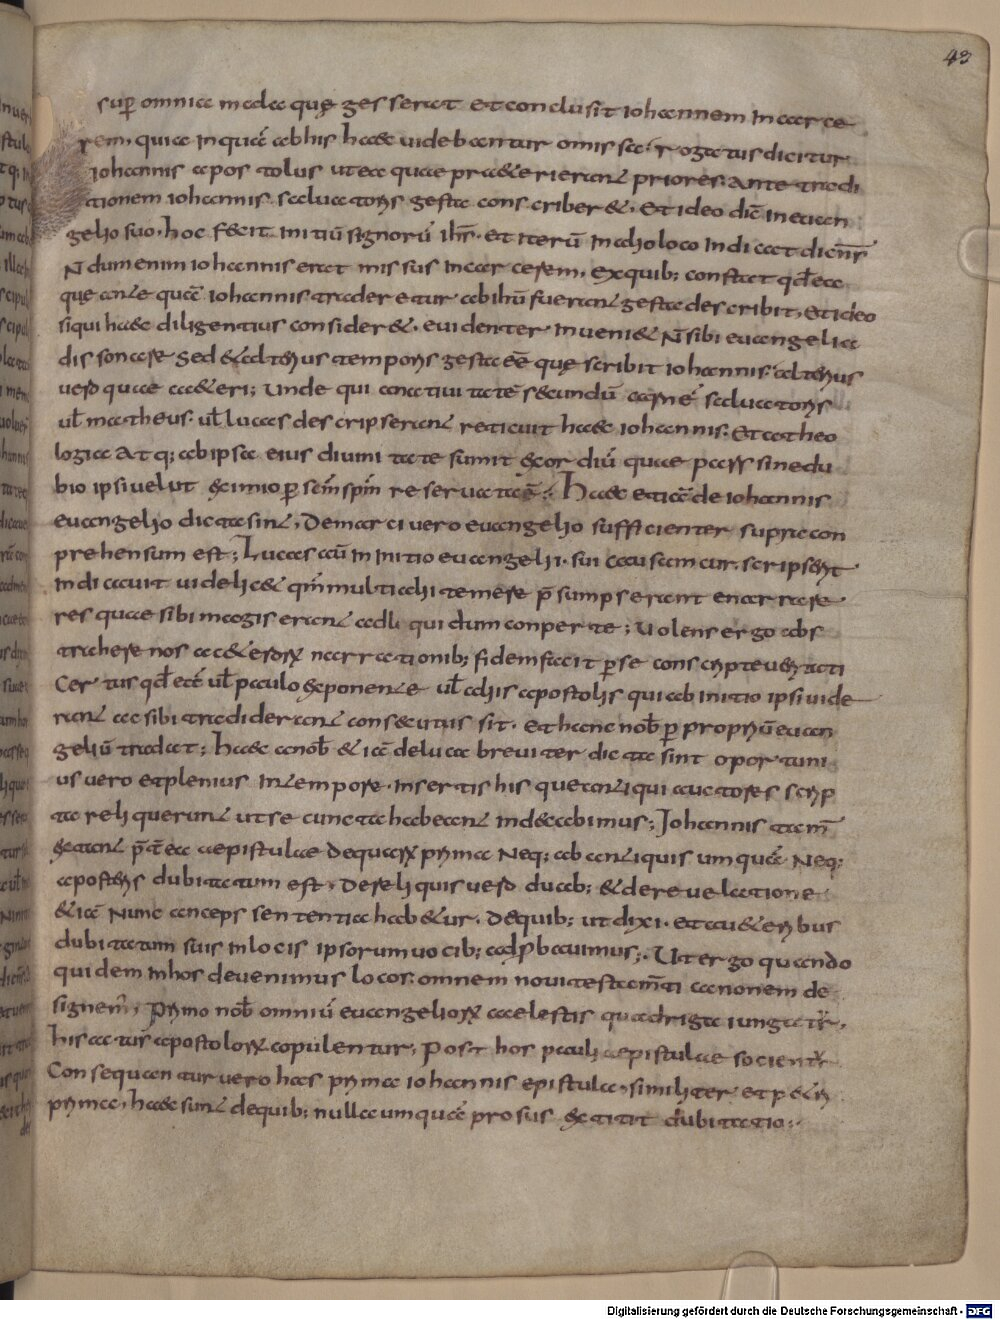 43
sup̄ omnia mala quę gesserat et conclusit iohannem in carce
rem, quia inquā ab his haec uidebantur omissa rogatus dicitur
iohannis apostolus ut ea quae praeterierant priores ante tradi
tionem iohannis saluatoris gesta conscriberet. et ideo dic̄ in euan
gelio suo. hoc fecit initiū signorū ih̄s. et iterū in alio loco indicat dicens
Ñ dum enim iohannis erat missus in carcerem, ex quib; constat qd̄ ea
quę ante quā iohannis traderetur ab ih̄u fuerant gesta describit. et ideo
siqui haec diligentius consideret. euidenter inueniet ñ sibi euangelia
dissonare sed et alterius temporis gesta ēē quę scribit iohannis. alterius
uero quae ceteri; unde qui
ul̄ matheus. ul̄ lucas descripserant reticuit haec iohannis. et a theo
logia atq; ab ipsa eius diuinitate sumit exordiū quae pars sine du
bio ipsi uelut eximio p̄ sc̄m sp̄m reseruata ē; Haec etiā de iohannis
euangelio dicta sint, De marci uero euangelio sufficienter supra con
prehensum est; Lucas aū in initio euangelii sui causam cur scripserit
indicauit uidelicet qm̄ multi alii temere p̄sumpserant enarrare
res quae sibi magis erant ad conperte; uolens ergo abs
trahere nos a ceterorū narrationib; fidem facit p̄ se conscripte ueritati
Certus qd̄ etē ul̄ paulo exponente ul̄ aliis apostolis qui ab initio ipsi uide
rant ac sibi tradiderant consecutus sit. et hanc nob̄ p̄ propriū euan
geliū tradat; haec a nob̄ etiā de luca breuiter dicta sint oportuni
us uero et plenius in tempore. insertis his que antiqui auctores scrip
ta reliquerunt ut se cuncta habeant indicabimus; Iohannis tam̄
extant p̄tea aepistulae de quarū prima neq; ab antiquis umquā neq;
a posteris dubitatum est, de reliquis uero duab; et de reuelatione
etiā nunc anceps sententia habetur. de quib; ut dixi. et a ueteribus
dubitatum suis in locis ipsorum uocib; adp̄bauimus; Ut ergo quando
quidem in hos deuenimus locos. omnem noui testam̄ti canonem de
signem̄, primo nob̄ omniū euangeliorū caelestis quadriga iungatur,
his actus apostolorū copulentur, post hos pauli aepistulae socientur
Consequantur uero has prima iohannis epistula. similiter et petri
prima. haec sunt de quib; nulla umquā prosus extitit dubitatio;
Digitalisierung gefördert durch die Deutsche Forschungsgemeinschaft - DFG